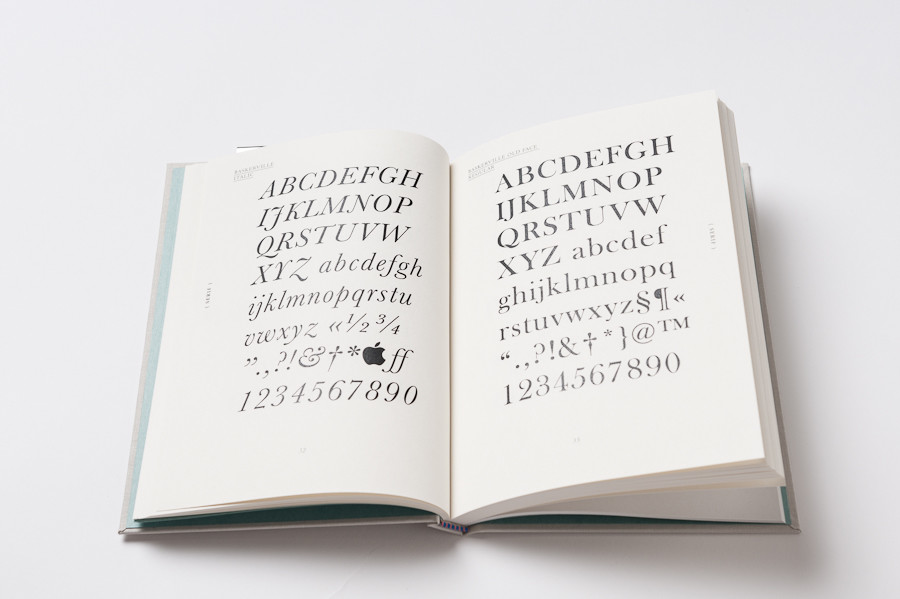 BASKERVILLE
ITALIC
ABCDEFGH
IJKLMNOP
QRSTUVW
XYZ abcdefgh
ijklmnopqrstu
vwxyz «½ ¾
”.,?!&†*ff
1234567890
[ SERIF ]
52
BASKERVILLE OLD FACE
REGULAR
ABCDEFGH
IJKLMNOP
QRSTUVW
XYZ abcdef
ghijklmnopq
rstuvwxyz§¶«
“.,?!&†*}@™
1234567890
[ SERIF ]
53